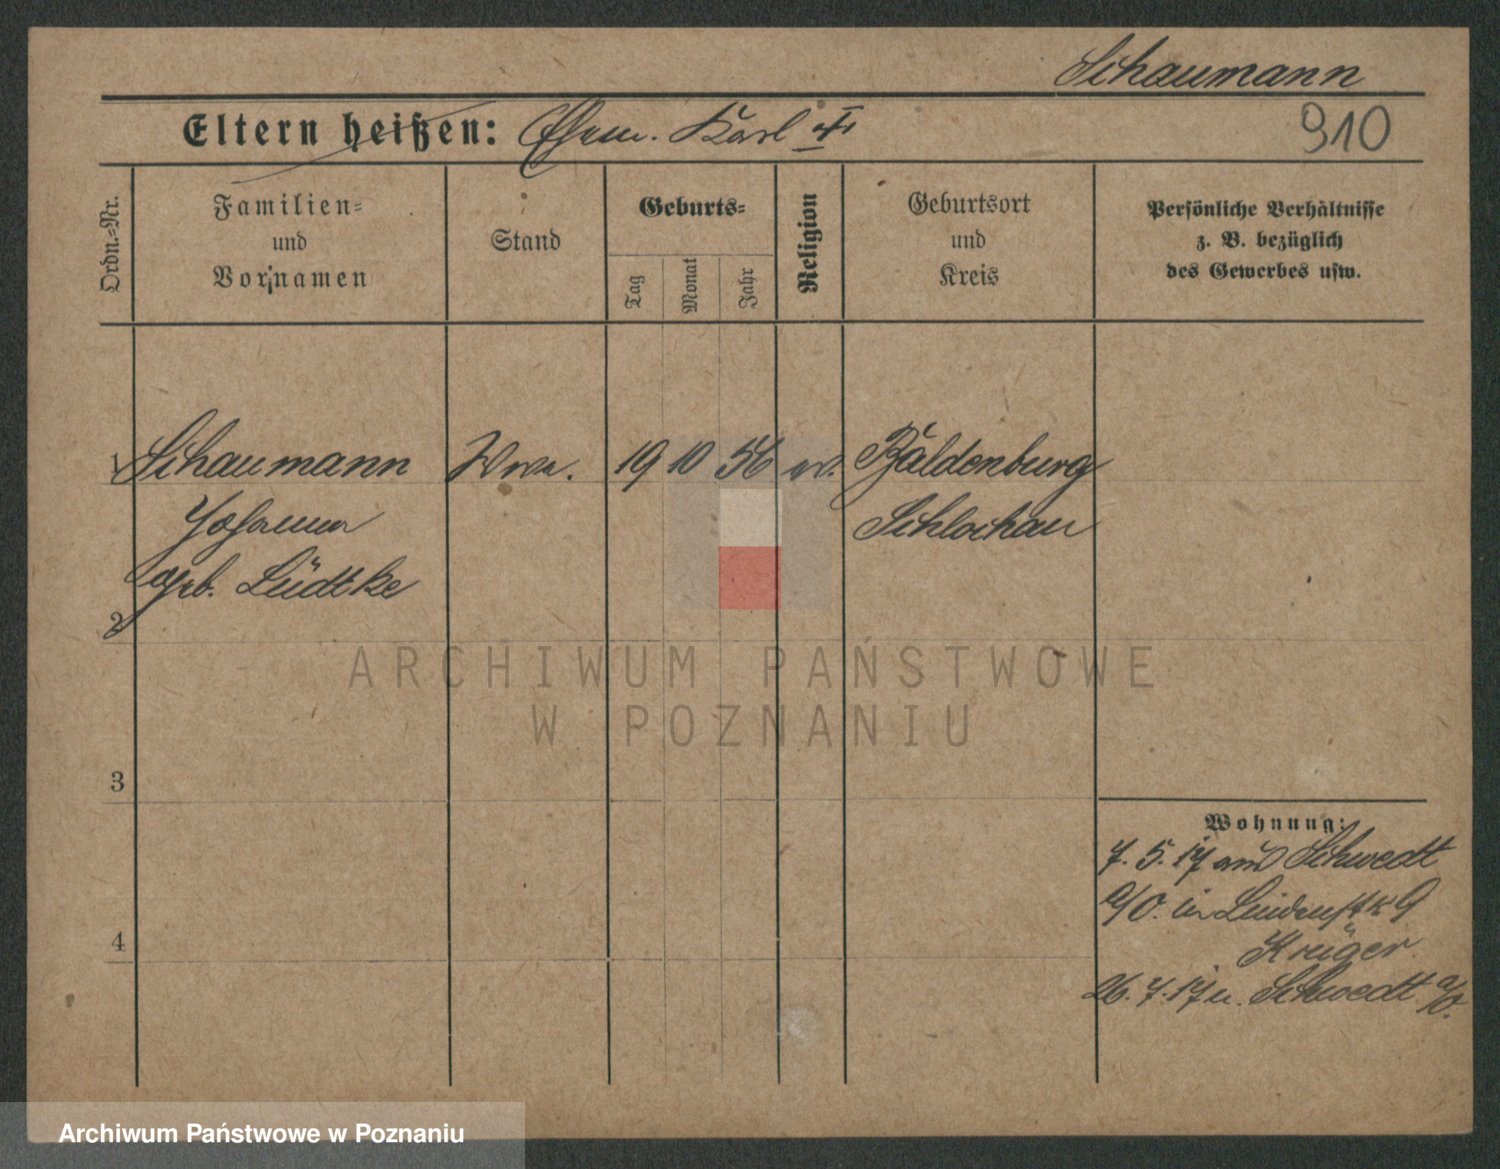 Schaumann
910
Eltern heißen: Ehem. Karl
Ordn.-Nr.
Familien-
und
Vornamen
Stand
Geburts-
Tag
Monat
Jahr
Religion
Geburtsort
und
Kreis
Persönliche Verhältnisse
z. B. bezüglich
des Gewerbes usw.
1 Schaumann Wwe. 19 10 56 ev. Baldenburg
Johanna Schlochau
geb. Lüdtke
2
3
4
ARCHIWUM PAŃSTWOWE
W POZNANIU
Wohnung:
7. 5. 17 aus Schwedt
a/O. in Lindenstr 9
Krüger
26. 7. 17 n. Schwedt a/O.
Archiwum Państwowe w Poznaniu